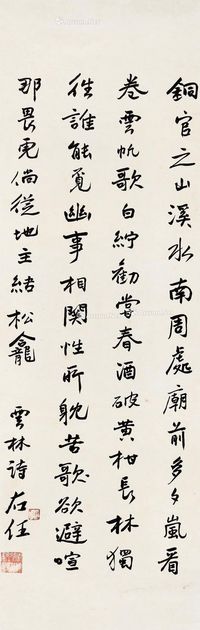 銅官之山溪水南周處廟前多夕嵐看
卷雲帆歌白紵勸嘗春酒破黃柑長林獨
往誰能覓幽事相關性所躭苦歌欲避喧
那畏虎倘從地主結松龕 雲林詩 右任